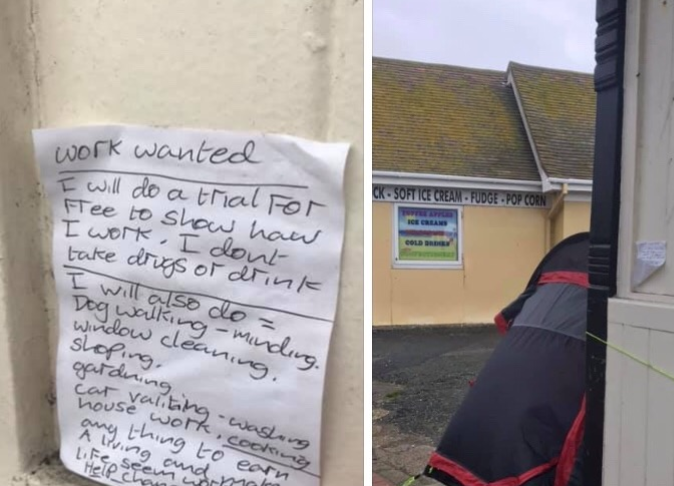 work wanted
I will do a trial For
Free to show how
I work. I dont
take drugs or drink
I will also do =
Dog walking - minding.
window cleaning.
shoping.
gardning
car valiting - washing
house work, cooking
any thing to earn
A living and make
life seem
Help
CK - SOFT ICE CREAM - FUDGE - POP CORN
TOFFEE APPLES
ICE CREAMS
COLD DRINKS